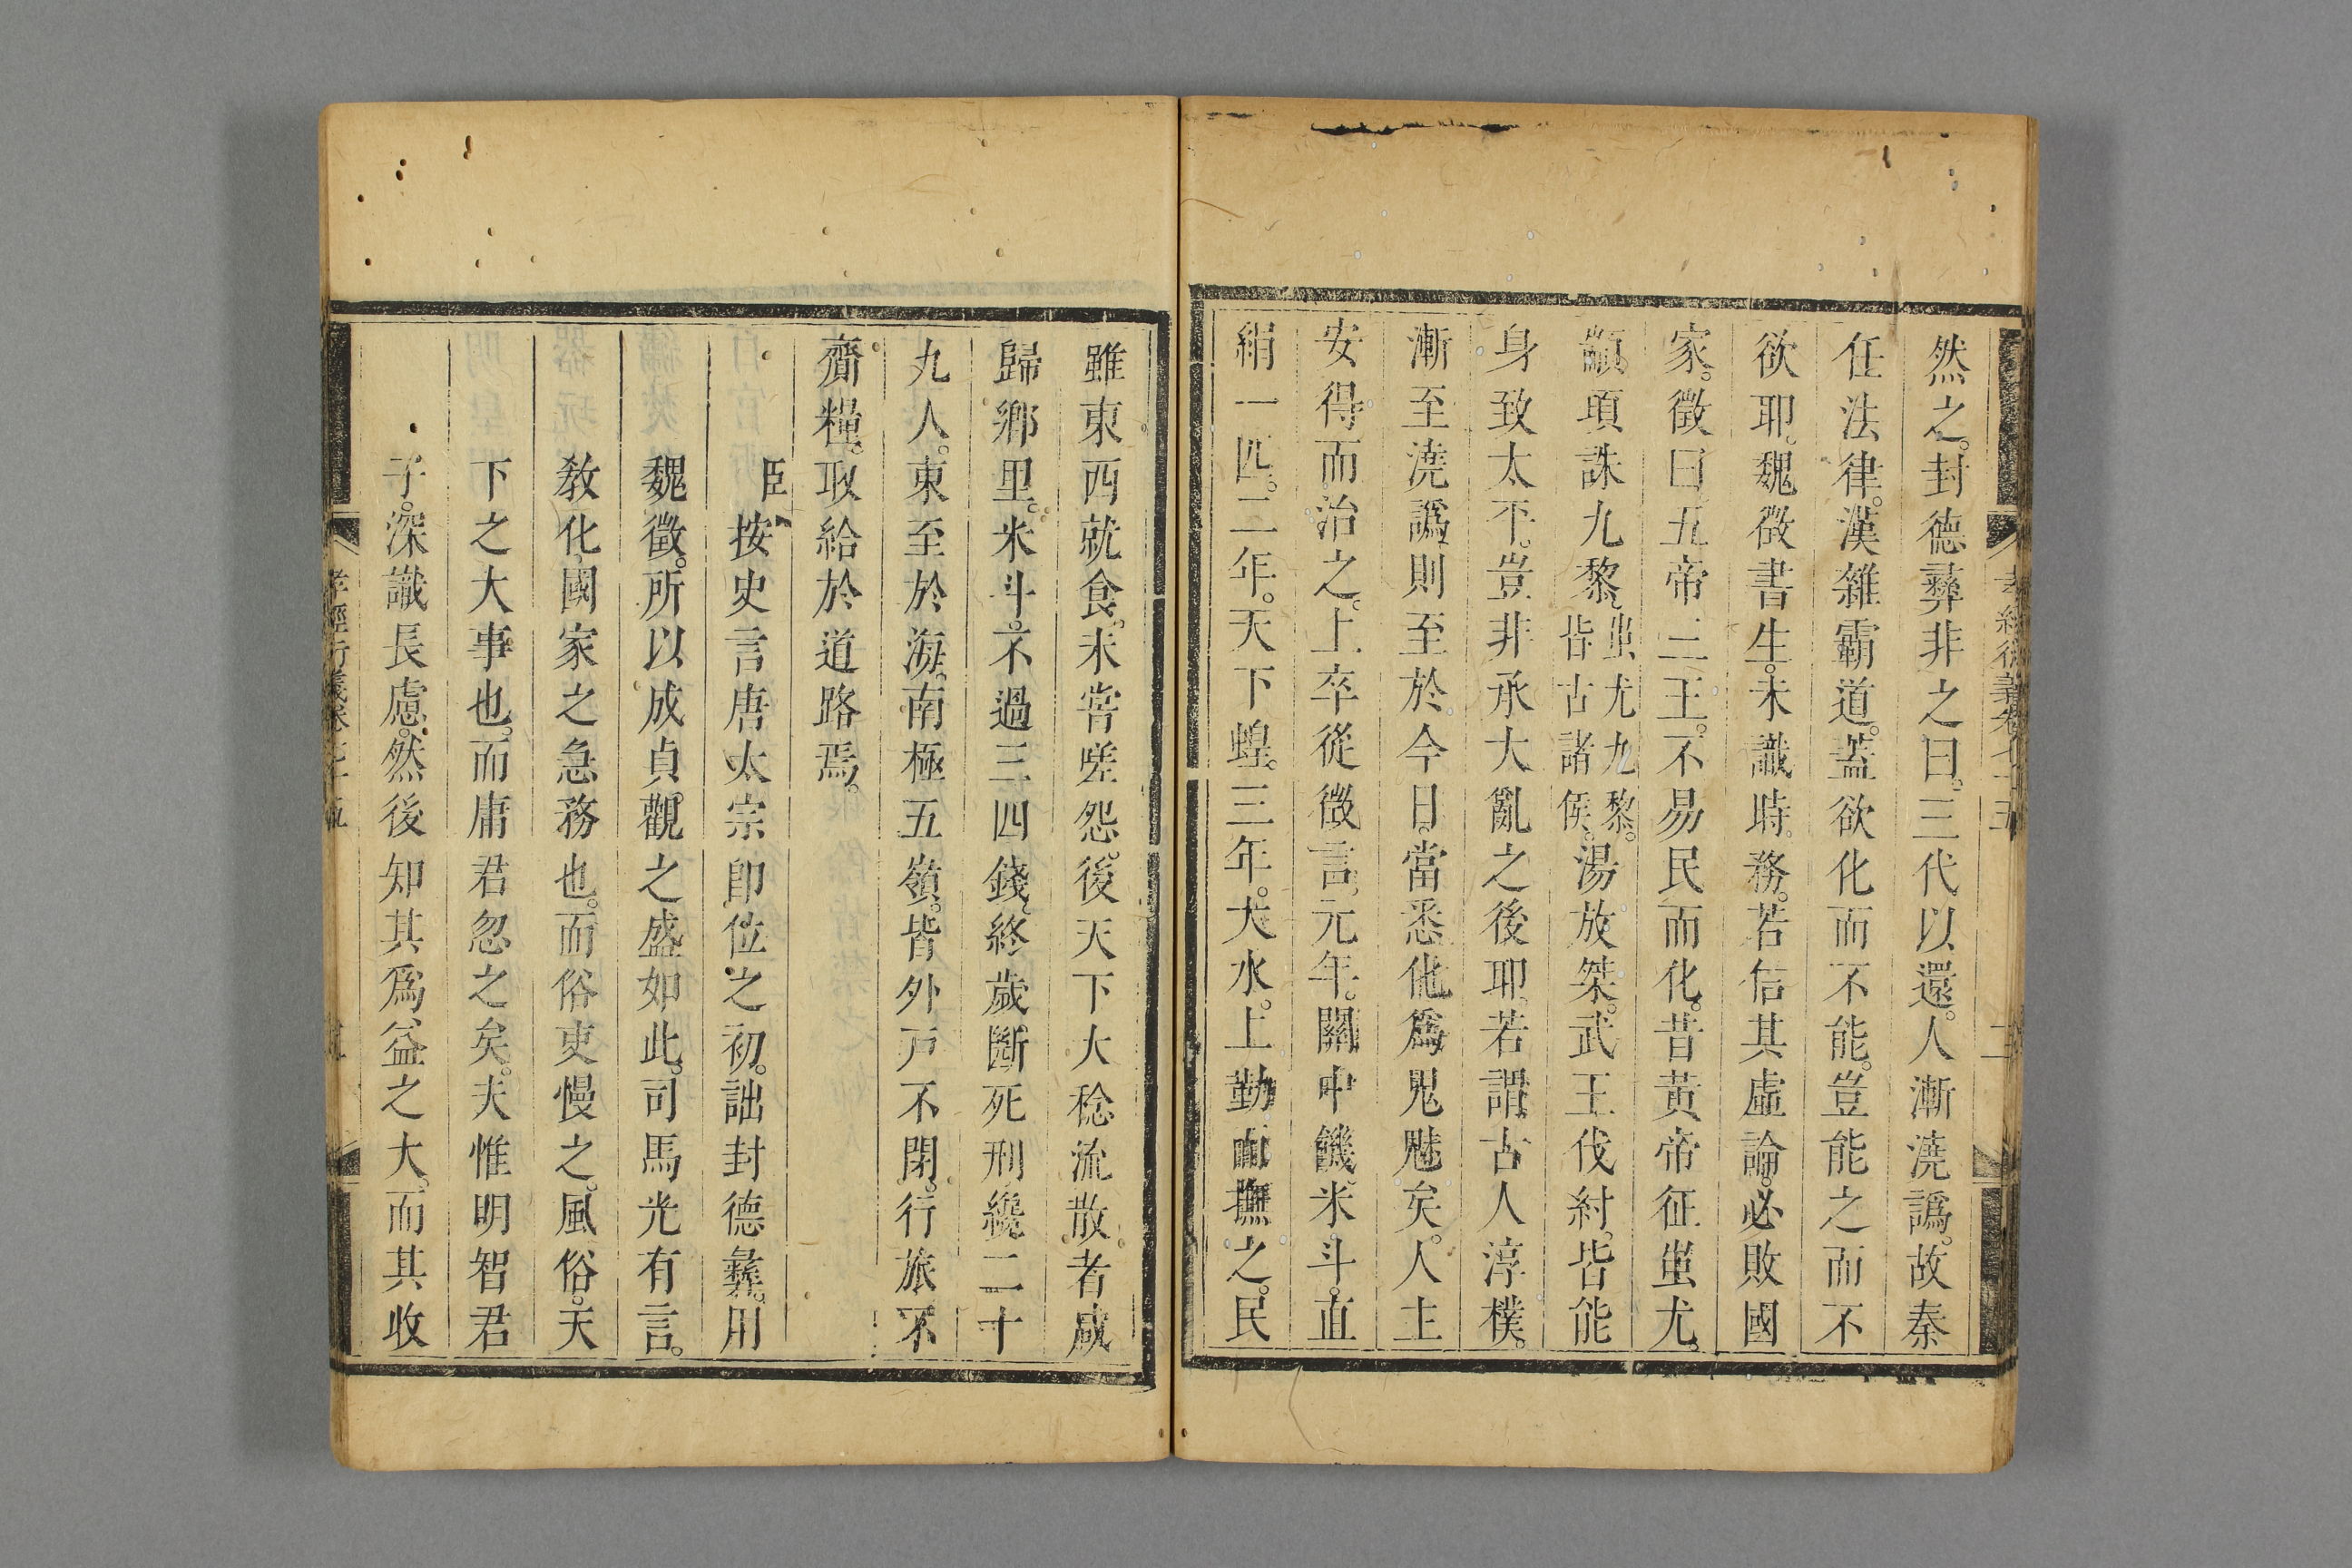 然之。封德彞非之曰。三代以還。人漸澆譌。故秦
任法律。漢雜霸道。蓋欲化而不能。豈能之而不
欲耶。魏徵書生。未識時務。若信其虛論。必敗國
家。徵曰五帝三王。不易民而化。昔黃帝征蚩尤。
顓頊誅九黎。蚩尤九黎。皆古諸侯。湯放桀。武王伐紂。皆能
身致太平。豈非承大亂之後耶。若謂古人淳樸。
漸至澆譌。則至於今日。當悉化爲鬼魅矣。人主
安得而治之。上卒從徵言。元年。關中饑。米斗。直
絹一匹。二年。天下蝗。三年。大水。上勤而撫之。民
雖東西就食。未嘗嗟怨。後天下大稔流散者咸
歸鄉里。米斗。不過三四錢。終歲斷死刑纔二十
九人。東至於海。南極五嶺。皆外戸不閉。行旅不
齎糧。取給於道路焉。
臣按史言唐太宗卽位之初。詘封德彝。用
魏徵。所以成貞觀之盛如此。司馬光有言。
教化國家之急務也。而俗吏慢之。風俗。天
下之大事也。而庸君忽之矣。夫惟明智君
子。深識長慮。然後知其爲益之大。而其收
孝經衍義卷七十五